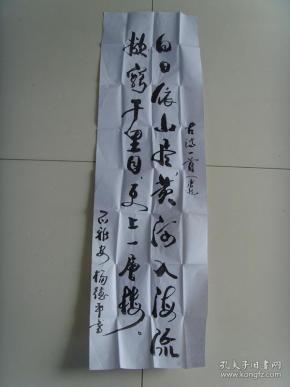 白日依山尽黄河入海流
欲穷千里目更上一层楼。
古诗一首
杨德平书
孔夫子旧书网
www.kongfz.com